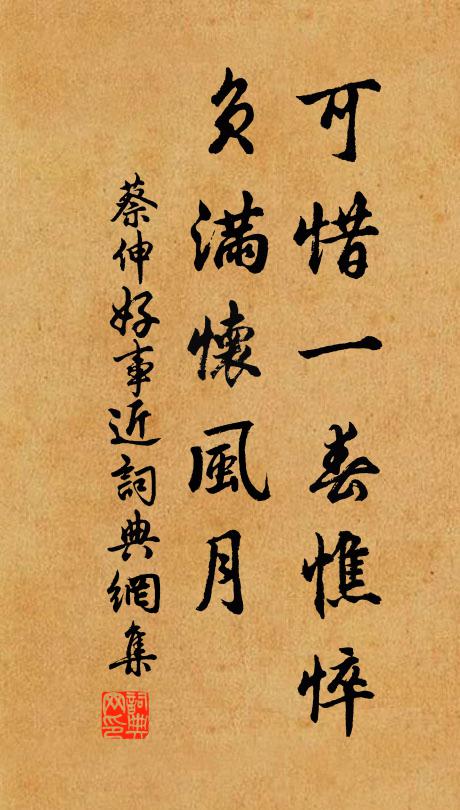 可惜一春憔悴
負滿懷風月
蔡伸好事近詞典網集
詞典网印